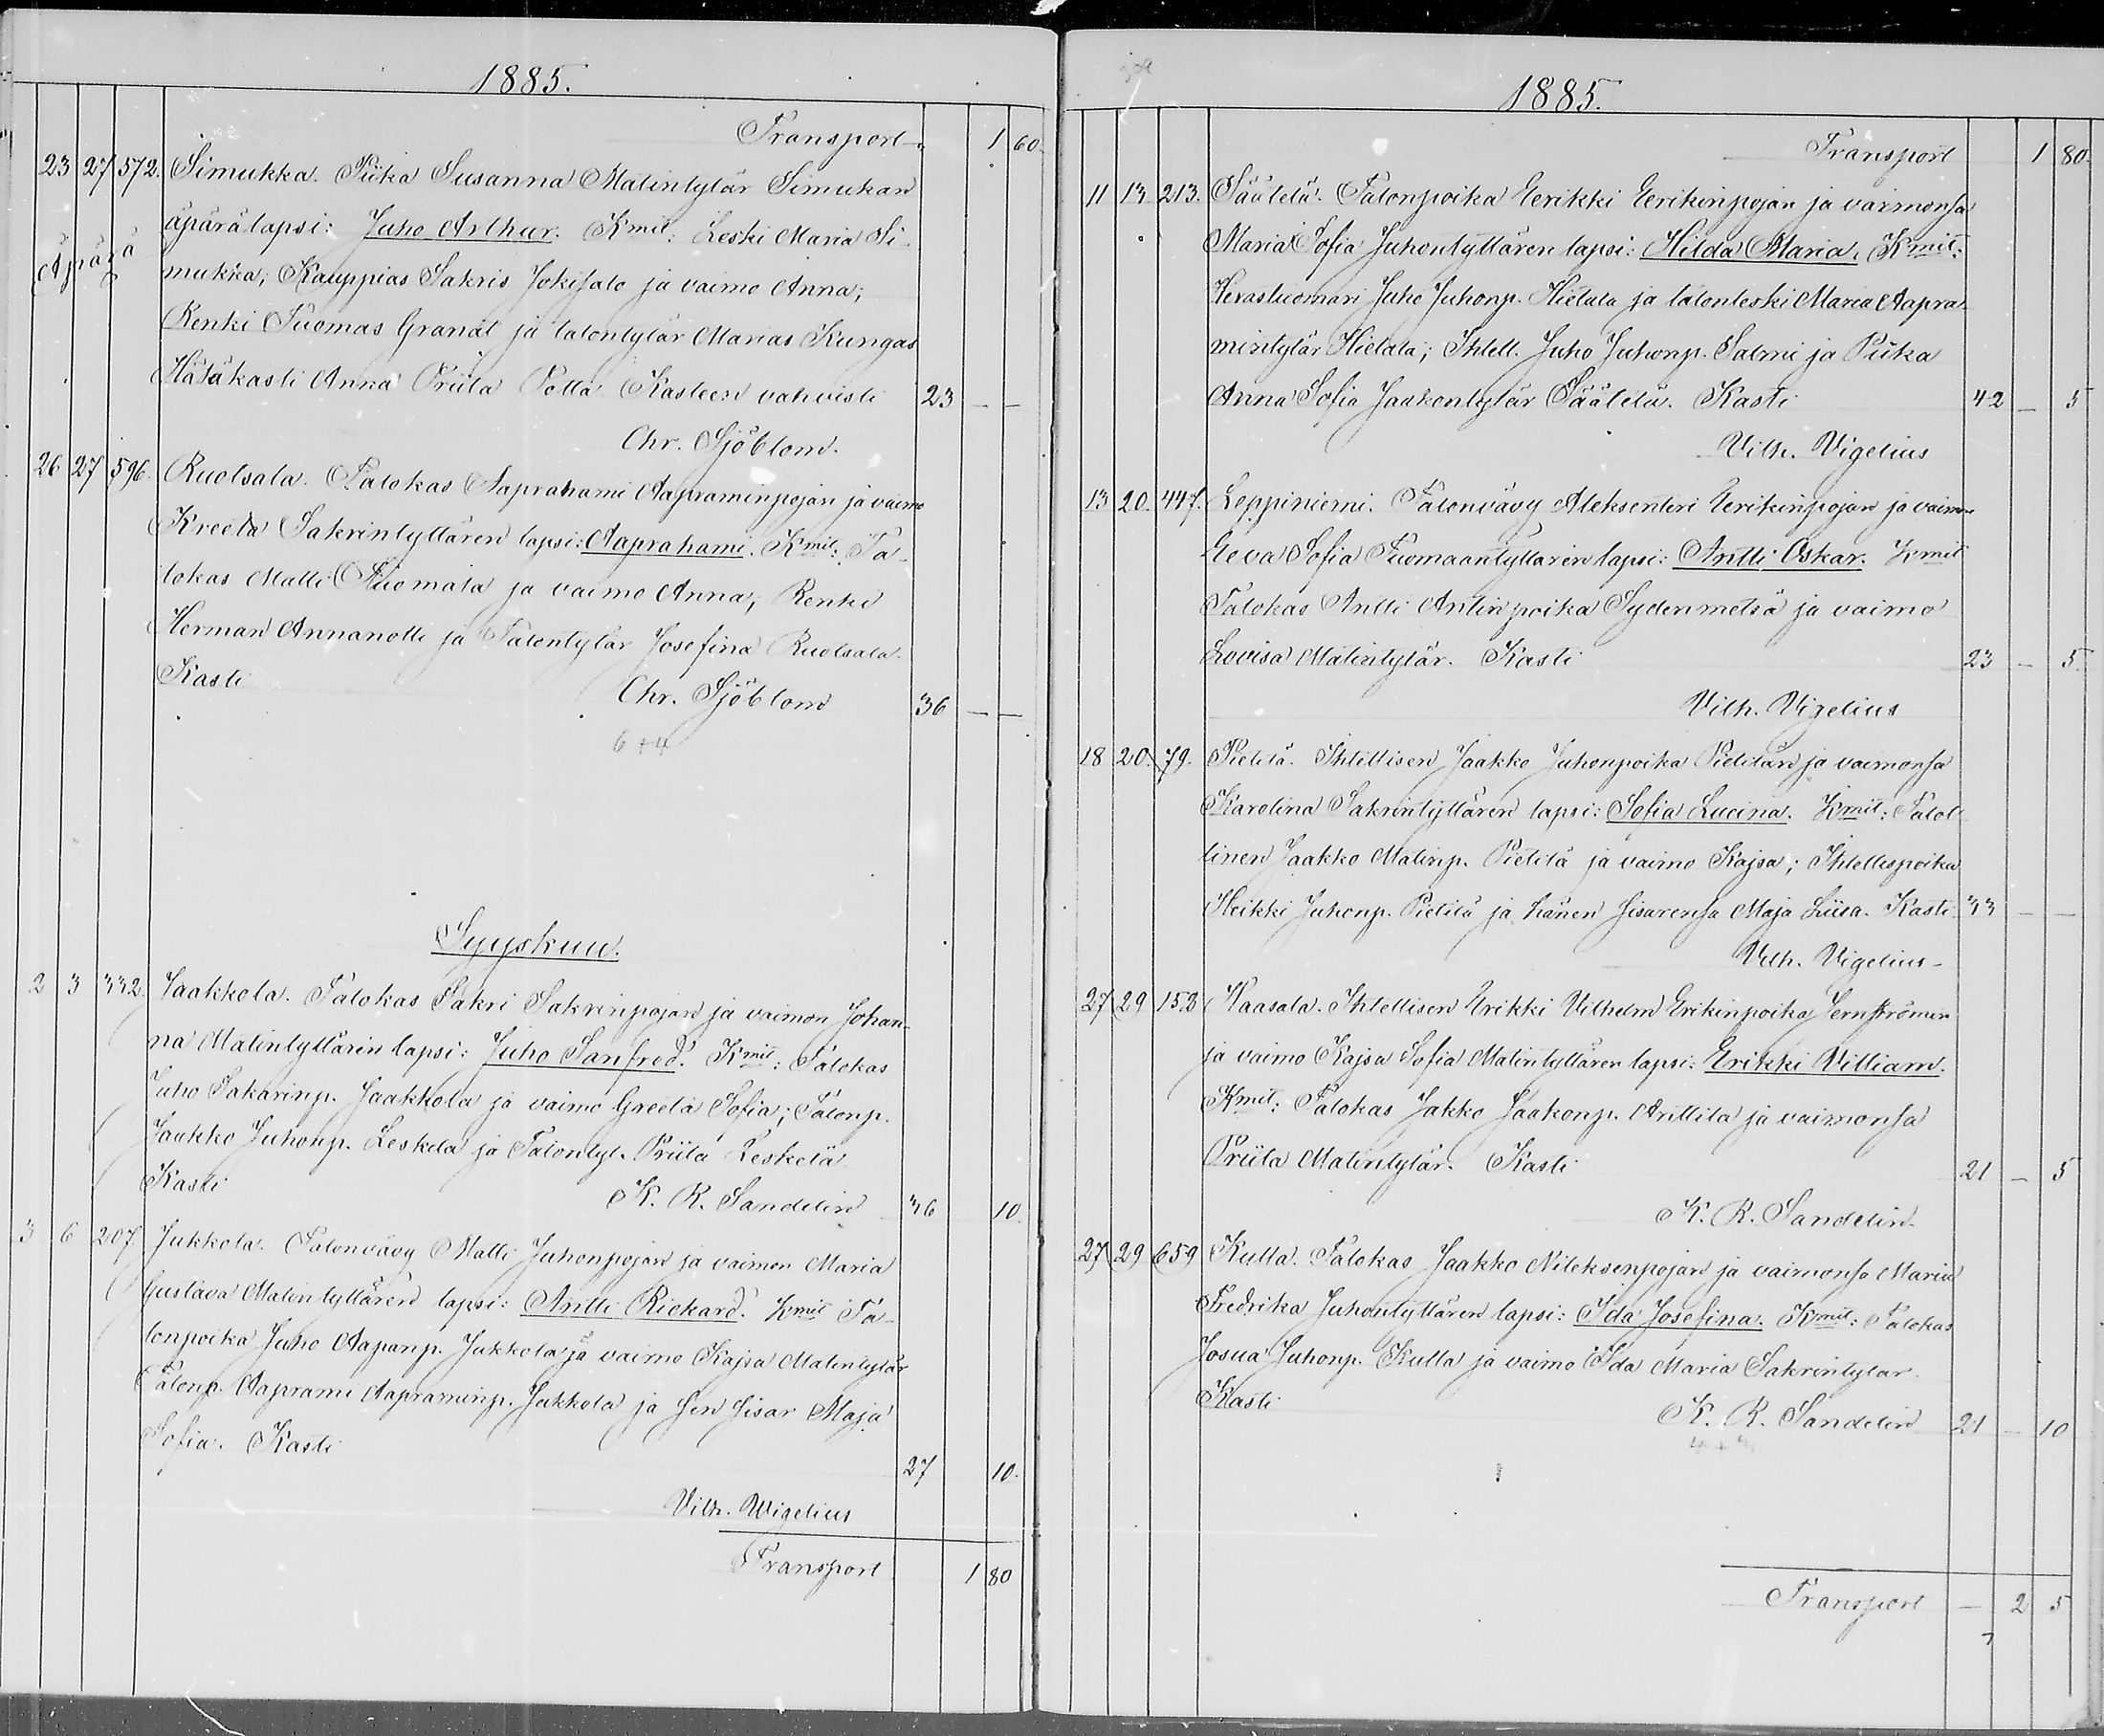 1885.
Transport 1 60.
23 27 572. Simukka. Piika Susanna Matintytär Simukan
Äpärä äpärälapsi: Juho Arthur. Kmit: Leski Maria Si-
mukka; Kauppias Sakris Jokisalo ja vaimo Anna;
Renki Tuomas Granat ja talontytär Maria Kungas
Hätäkasti Anna Priita Potta Kasteen vahvisti 23 — —
Chr. Sjöblom.
26 27 596. Ruotsala. Talokas Aaprahami Aapraminpojan ja vaimo
Kreeta Sakrintyttären lapsi: Aaprahami. Kmit: Ta-
lokas Matti Tuomala ja vaimo Anna; Renki
Herman Annanolli ja Talontytär Josefina Ruotsala.
Kasti Chr. Sjöblom 36 — —
6+4
Syyskuu.
2 3 332. Jaakkola. Talokas Sakri Sakrinpojan ja vaimon Johan-
na Matintyttären lapsi: Juho Sanfred. Kmit: Talokas
Juho Sakarinp. Jaakkola ja vaimo Greeta Sofia; Talonp.
Jaakko Juhonp. Leskelä ja Talontyt. Priita Leskelä
Kasti K. R. Sandelin 36 10.
3 6 207. Jukkola. Talonvävy Matti Juhonpojan ja vaimon Maria
Gustava Matintyttären lapsi: Antti Rickard. Kmit Ta-
lonpoika Juho Aapanp. Jukkola ja vaimo Kajsa Matintytär
Talonp. Aaprami Aapraminp. Jukkola ja sen sisar Maja
Sofia. Kasti 27 10.
Vilh. Wigelius
Transport 1 80
1885.
Transport 1 80.
11 13 213. Säälelä. Talonpoika Eerikki Eerikinpojan ja vaimonsa
Maria Sofia Juhontyttären lapsi: Hilda Maria. Kmit:
Herastuomari Juho Juhonp. Hietala ja talonleski Maria Aapra-
mintytär Hietala; Ihtell. Juho Juhonp. Salmi ja Piika
Anna Sofia Jaakontytär Säälelä. Kasti 42 — 5
Vilh. Vigelius
13 20. 447. Leppiniemi. Talonvävy Aleksenteri Eerikinpojan ja vaimon
Eeva Sofia Tuomaantyttären lapsi: Antti Oskar. Kmit
Talokas Antti Antinpoika Sydenmetsä ja vaimo
Lovisa Matintytär. Kasti 23 — 5.
Vilh. Vigelius
18 20. 79. Pietilä. Ihtellisen Jaakko Juhonpoika Pietilän ja vaimonsa
Karolina Sakrintyttären lapsi: Sofia Lucina. Kmit: Talol-
linen Jaakko Matinp. Pietilä ja vaimo Kajsa; Ihtellispoika
Heikki Juhonp. Pietilä ja hänen sisarensa Maja Liisa. Kasti 33 — —
Vilh. Vigelius
27 29 158 Haasala. Ihtellisen Erikki Vilhelm Erikinpoika Jernströmen
ja vaimo Kajsa Sofia Matintyttären lapsi: Erikki Villiam.
Kmit: Talokas Jakko Jaakonp. Anttila ja vaimonsa
Priita Matintytär. Kasti 21 — 5
K. R. Sandelin
27 29 659 Kulla. Talokas Jaakko Nileksenpojan ja vaimonsa Maria
Fredrika Juhontyttären lapsi: Ida Josefina. Kmit: Talokas
Josua Juhonp. Kulla ja vaimo Ida Maria Sakrintytär.
Kasti K. R. Sandelin 21 — 10
Transport — 2 5